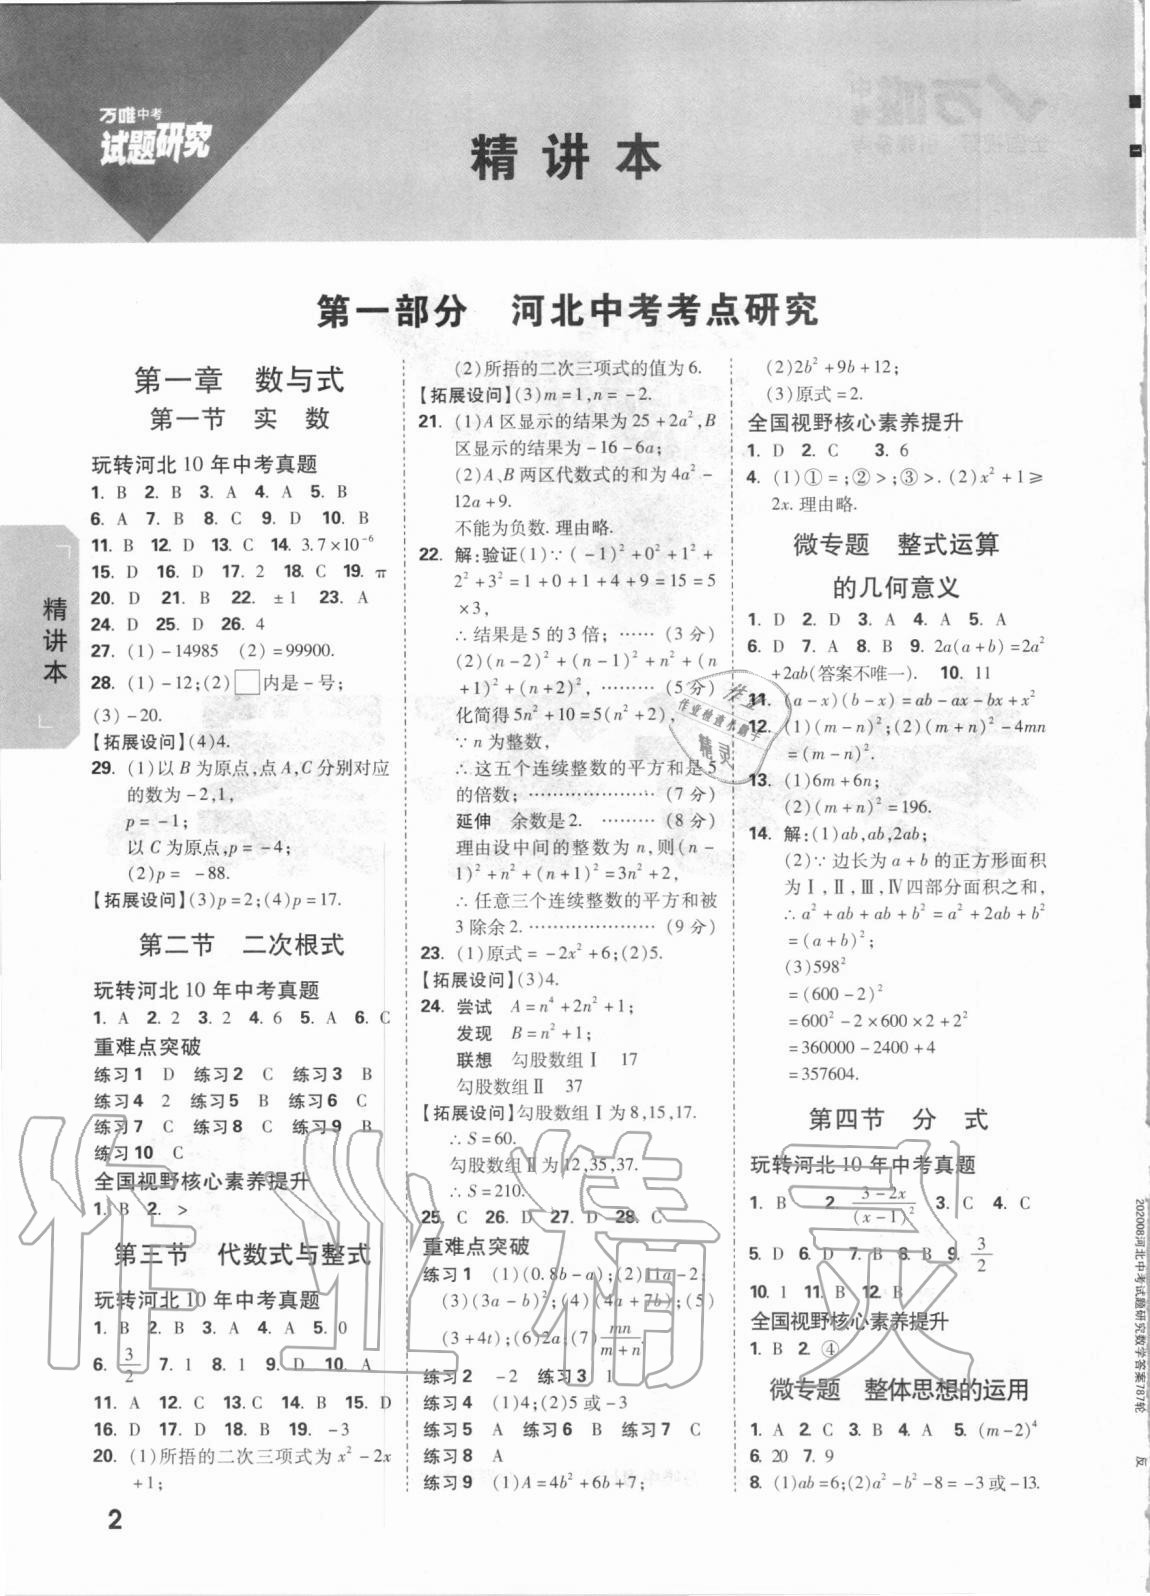 万唯中考
试题研究
精讲本
第一部分 河北中考考点研究
第一章 数与式
第一节 实 数
玩转河北10年中考真题
1. B 2. B 3. A 4. A 5. B
6. A 7. B 8. C 9. D 10. B
11. B 12. D 13. C 14. 3.7×10⁻⁶
15. D 16. D 17. 2 18. C 19. π
20. D 21. B 22. ±1 23. A
24. D 25. D 26. 4
27. (1)-14985 (2)=99900.
28. (1)-12;(2)□内是-号;
(3)-20.
【拓展设问】(4)4.
29. (1)以B为原点,点A,C分别对应
的数为-2,1,
p=-1;
以C为原点,p=-4;
(2)p= -88.
【拓展设问】(3)p=2;(4)p=17.
第二节 二次根式
玩转河北10年中考真题
1. A 2. 2 3. 2 4. 6 5. A 6. C
重难点突破
练习1 D 练习2 C 练习3 B
练习4 2 练习5 B 练习6 C
练习7 C 练习8 C 练习9 B
练习10 C
全国视野核心素养提升
1. B 2. >
第三节 代数式与整式
玩转河北10年中考真题
1. B 2. B 3. A 4. A 5. 0
6. 3/2 7. 1 8. 1 9. D 10. A
11. A 12. C 13. C 14. B 15. D
16. D 17. D 18. B 19. -3
20. (1)所捂的二次三项式为x²-2x
+1;
(2)所捂的二次三项式的值为6.
【拓展设问】(3)m=1,n=-2.
21. (1)A区显示的结果为25+2a²,B
区显示的结果为-16-6a;
(2)A、B两区代数式的和为4a²-
12a+9.
不能为负数.理由略.
22. 解:验证(1)∵(-1)²+0²+1²+
2²+3²=1+0+1+4+9=15=5
×3,
∴结果是5的3倍;……(3分)
(2)(n-2)²+(n-1)²+n²+(n
+1)²+(n+2)²,………(5分)
化简得5n²+10=5(n²+2),
∵n为整数,
∴这五个连续整数的平方和是5
的倍数;…………………(7分)
延伸 余数是2. ………(8分)
理由设中间的整数为n,则(n-
1)²+n²+(n+1)²=3n²+2,
∴任意三个连续整数的平方和被
3除余2.…………………(9分)
23. (1)原式=-2x²+6;(2)5.
【拓展设问】(3)4.
24. 尝试 A=n⁴+2n²+1;
发现 B=n²+1;
联想 勾股数组Ⅰ 17
勾股数组Ⅱ 37
【拓展设问】勾股数组Ⅰ为8,15,17.
∴S=60.
勾股数组Ⅱ为12,35,37.
∴S=210.
25. C 26. D 27. D 28. C
重难点突破
练习1 (1)(0.8b-a);(2)11a-2;
(3)(3a-b)²;(4)(4a+7b);(5)
(3+4t);(6)2a;(7)mn/(m+n).
练习2 -2 练习3 1
练习4 (1)4;(2)5或-3
练习5 A 练习6 B 练习7 C
练习8 A
练习9 (1)A=4b²+6b+7;
(2)2b²+9b+12;
(3)原式=2.
全国视野核心素养提升
1. D 2. C 3. 6
4. (1)①=;②>;③>.(2)x²+1≥
2x.理由略.
微专题 整式运算
的几何意义
1. D 2. D 3. A 4. A 5. A
6. D 7. A 8. B 9. 2a(a+b)=2a²
+2ab(答案不唯一). 10. 11
11. (a-x)(b-x)=ab-ax-bx+x²
12. (1)(m-n)²;(2)(m+n)²-4mn
=(m-n)².
13. (1)6m+6n;
(2)(m+n)²=196.
14. 解:(1)ab,ab,2ab;
(2)∵边长为a+b的正方形面积
为Ⅰ,Ⅱ,Ⅲ,Ⅳ四部分面积之和,
∴a²+ab+ab+b²=a²+2ab+b²
=(a+b)²;
(3)598²
=(600-2)²
=600²-2×600×2+2²
=360000-2400+4
=357604.
第四节 分 式
玩转河北10年中考真题
1. B 2. (3-2x)/(x-1)² 3. C 4. C
5. D 6. D 7. B 8. B 9. 3/2
10. 1 11. B 12. B
全国视野核心素养提升
1. B 2. ④
微专题 整体思想的运用
1. A 2. C 3. B 4. A 5. (m-2)⁴
6. 20 7. 9
8. (1)ab=6;(2)a²-b²-8=-3或-13.
精讲本
2
202008河北中考试题研究数学答案787轮 反
作业精灵
作业检查小助手
精灵